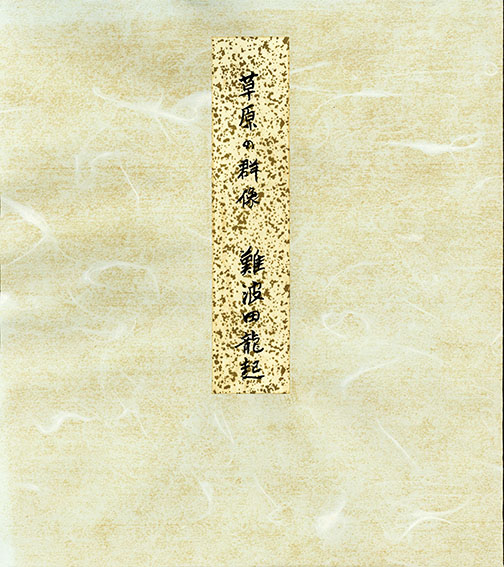 草原の群像　難波田龍起